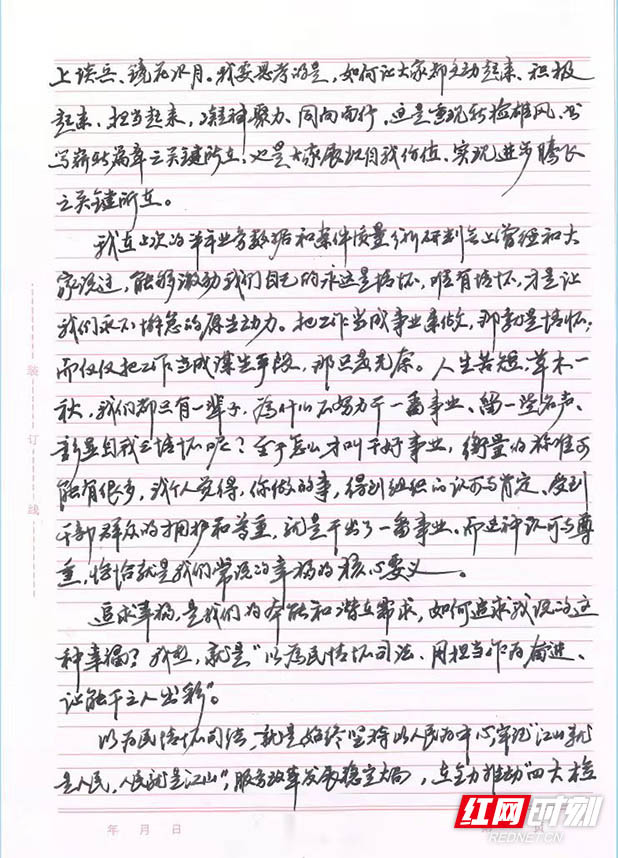 上谈兵、镜花水月。我要思考的是，如何让大家都主动起来、积极
起来、担当起来，凝神聚力、同向而行，这是重现检雄风、书
写崭新篇章之关键所在，也是大家展现自我价值、实现进步腾飞
之关键所在。
我在上次的半年业务数据和案件质量分析研判会上曾经和大
家说过，能够激励我们自己的永远是情怀，唯有情怀，才是让
我们永不懈怠的原生动力。把工作当成事业来做，那就是情怀；
而仅仅把工作当成谋生手段，那只是无奈。人生苦短，草木一
秋，我们都只有一辈子，为什么不努力干一番事业、留一些名声、
彰显自我之情怀呢？至于怎么才叫干好事业，衡量的标准可
能有很多，我个人觉得，你做的事，得到组织的认可与肯定、受到
干部群众的拥护和尊重，就是干出了一番事业。而这种认可与尊
重，恰恰就是我们常说的幸福的核心要义。
追求幸福，是我们的本能和潜在需求，如何追求我说的这
种幸福？我想，就是“以为民情怀司法、用担当作为奋进、
让能干之人出彩”。
以为民情怀司法，就是始终坚持以人民为中心，牢记“江山就
是人民，人民就是江山”，服务改革发展稳定大局，在全力推动“四大检
装
订
线
年 月 日
红网时刻
REDNET.CN